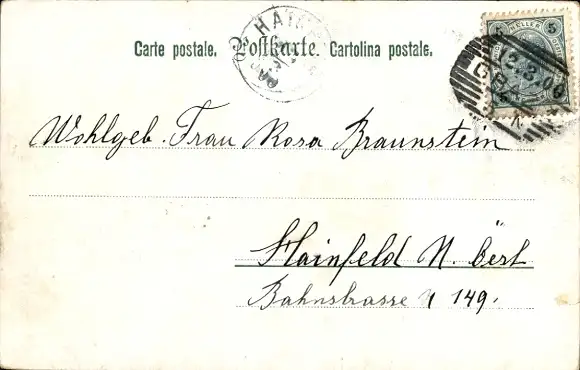 Carte postale. Postkarte. Cartolina postale.
HAIN
5 HELLER 5
12.3
GRAZ
1
Wohlgeb. Frau Rosa Braunstein
Hainfeld N. Öest
Bahnstrasse N 149.